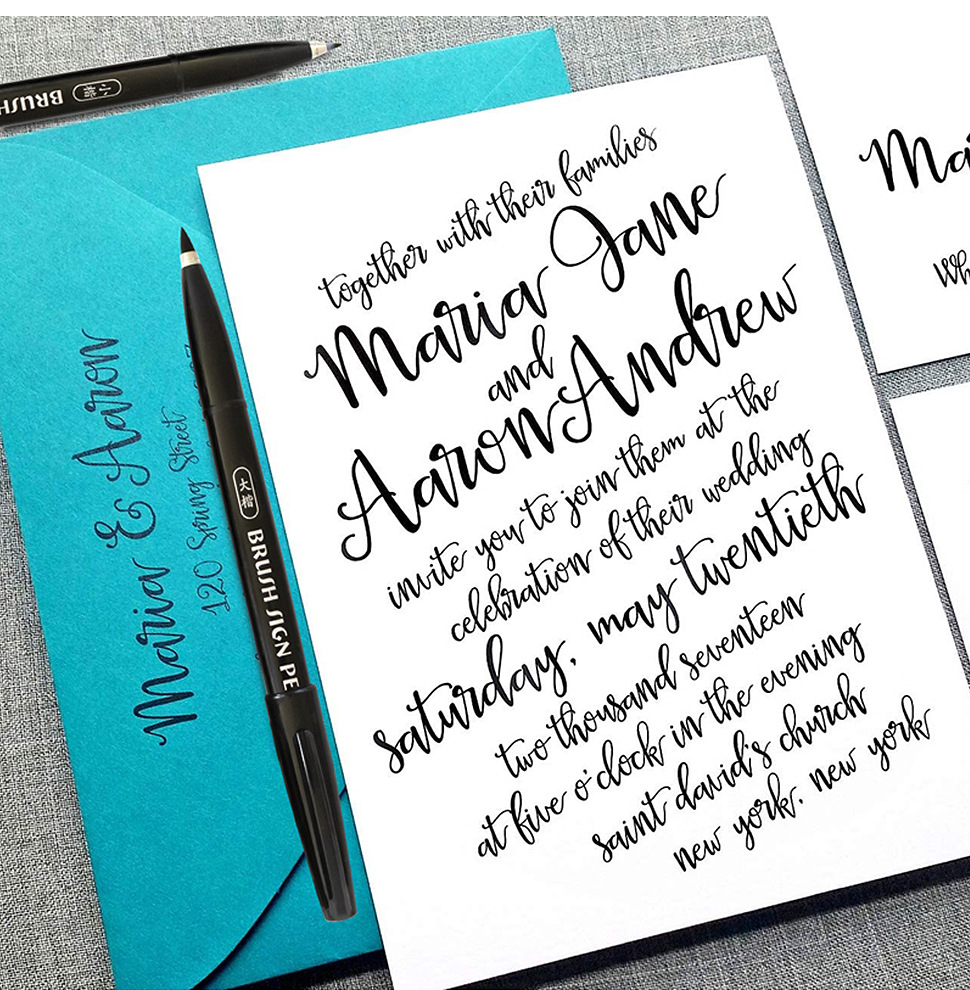 BRUSH
小楷
together with their families
Maria Jane
and
Aaron Andrew
invite you to join them at the
celebration of their wedding
saturday, may twentieth
two thousand seventeen
at five o'clock in the evening
saint david's church
new york, new york
Maria & Aaron
120 Spring Street
大楷
BRUSH SIGN PE
Ma
Wh